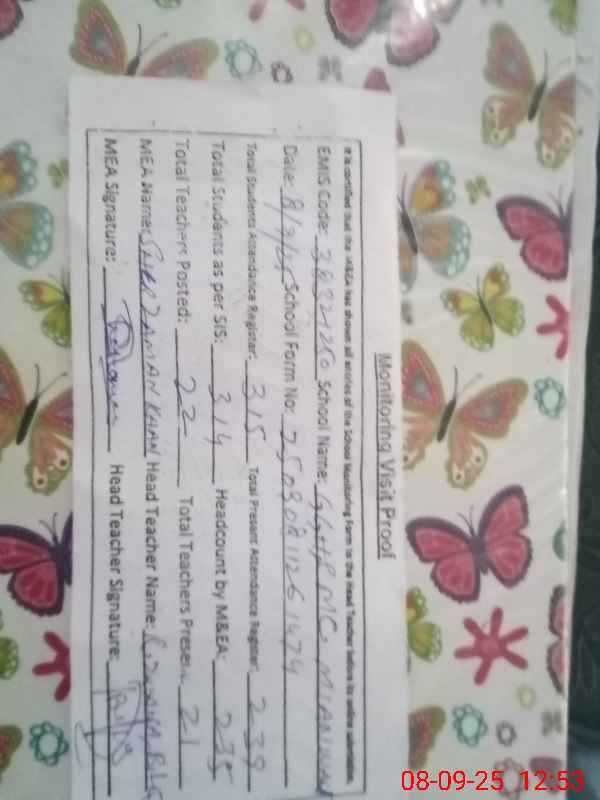 Monitoring Visit Proof
It is certified that the M&EA has shown all entries of the School Monitoring Form to the Head Teacher before its online submission.
EMIS Code: 38321250 School Name: MC MIANWALI
Date: 8/9/25 School Form No: 25090811261474
Total Students Attendance Register: 315 Total Present Attendance Register: 239
Total Students as per SIS: 314 Headcount by M&EA: 235
Total Teachers Posted: 22 Total Teachers Present: 21
MEA Name: ZAMAN KHAN Head Teacher Name:
MEA Signature: Head Teacher Signature:
08-09-25 12:53